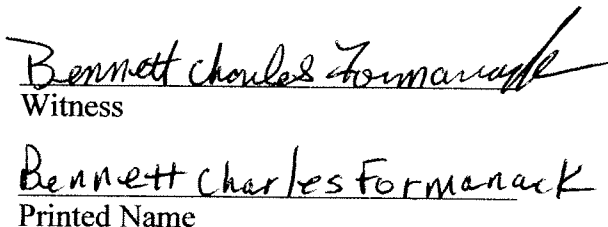 Bennett Charles Formanack
Witness
Bennett Charles Formanack
Printed Name